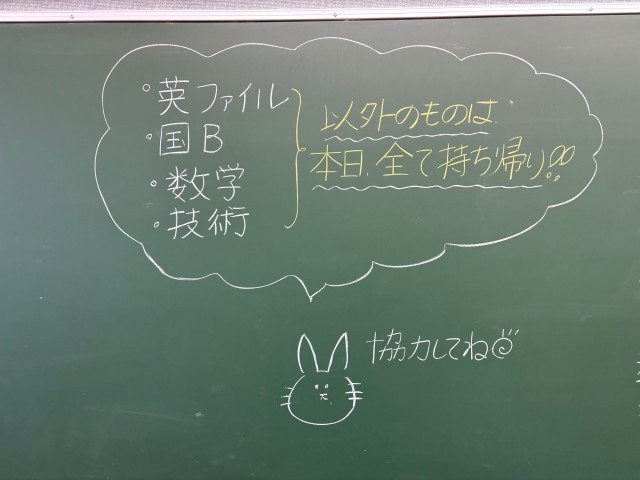 。英ファイル
。国B
。数学
。技術
以外のものは、
本日、全て持ち帰り!!
協力してね